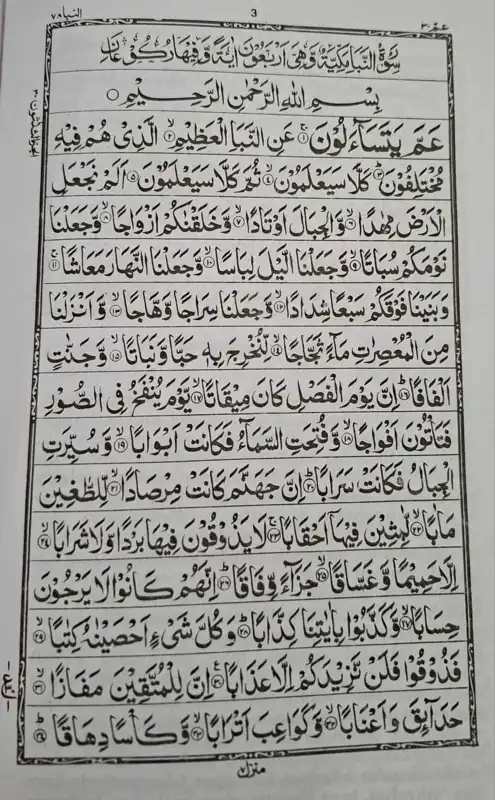 النبا ٧٨
3
عمّ ٣٠
سُوْرَةُ النَّبَاِ مَكِّيَّةٌ وَّهِىَ اَرْبَعُوْنَ اٰيَةً وَّفِيْهَا رُكُوْعَانِ
بِسْمِ اللهِ الرَّحْمٰنِ الرَّحِيْمِ ○
عَمَّ يَتَسَآءَلُوْنَ ۚ ﴿١﴾ عَنِ النَّبَاِ الْعَظِيْمِ ۙ ﴿٢﴾ الَّذِىْ هُمْ فِيْهِ
مُخْتَلِفُوْنَ ؕ ﴿٣﴾ كَلَّا سَيَعْلَمُوْنَ ۙ ﴿٤﴾ ثُمَّ كَلَّا سَيَعْلَمُوْنَ ﴿٥﴾ اَلَمْ نَجْعَلِ
الْاَرْضَ مِهٰدًا ۙ ﴿٦﴾ وَّالْجِبَالَ اَوْتَادًا ۙ ﴿٧﴾ وَّخَلَقْنٰكُمْ اَزْوَاجًا ۙ ﴿٨﴾ وَّجَعَلْنَا
نَوْمَكُمْ سُبَاتًا ۙ ﴿٩﴾ وَّجَعَلْنَا الَّيْلَ لِبَاسًا ۙ ﴿١٠﴾ وَّجَعَلْنَا النَّهَارَ مَعَاشًا ۚ ﴿١١﴾
وَبَنَيْنَا فَوْقَكُمْ سَبْعًا شِدَادًا ۙ ﴿١٢﴾ وَّجَعَلْنَا سِرَاجًا وَّهَّاجًا ۙ ﴿١٣﴾ وَّاَنْزَلْنَا
مِنَ الْمُعْصِرٰتِ مَآءً ثَجَّاجًا ۙ ﴿١٤﴾ لِّنُخْرِجَ بِهٖ حَبًّا وَّنَبَاتًا ۙ ﴿١٥﴾ وَّجَنّٰتٍ
اَلْفَافًا ؕ ﴿١٦﴾ اِنَّ يَوْمَ الْفَصْلِ كَانَ مِيْقَاتًا ۙ ﴿١٧﴾ يَّوْمَ يُنْفَخُ فِى الصُّوْرِ
فَتَاْتُوْنَ اَفْوَاجًا ۙ ﴿١٨﴾ وَّفُتِحَتِ السَّمَآءُ فَكَانَتْ اَبْوَابًا ۙ ﴿١٩﴾ وَّسُيِّرَتِ
الْجِبَالُ فَكَانَتْ سَرَابًا ؕ ﴿٢٠﴾ اِنَّ جَهَنَّمَ كَانَتْ مِرْصَادًا ۙ ﴿٢١﴾ لِّلطَّغِيْنَ
مَاٰبًا ۙ ﴿٢٢﴾ لّٰبِثِيْنَ فِيْهَاۤ اَحْقَابًا ۚ ﴿٢٣﴾ لَا يَذُوْقُوْنَ فِيْهَا بَرْدًا وَّلَا شَرَابًا ۙ ﴿٢٤﴾
اِلَّا حَمِيْمًا وَّغَسَّاقًا ۙ ﴿٢٥﴾ جَزَآءً وِّفَاقًا ؕ ﴿٢٦﴾ اِنَّهُمْ كَانُوْا لَا يَرْجُوْنَ
حِسَابًا ۙ ﴿٢٧﴾ وَّكَذَّبُوْا بِاٰيٰتِنَا كِذَّابًا ؕ ﴿٢٨﴾ وَكُلَّ شَىْءٍ اَحْصَيْنٰهُ كِتٰبًا ۙ ﴿٢٩﴾
فَذُوْقُوْا فَلَنْ نَّزِيْدَكُمْ اِلَّا عَذَابًا ﴿٣٠﴾ ع اِنَّ لِلْمُتَّقِيْنَ مَفَازًا ۙ ﴿٣١﴾
حَدَآئِقَ وَاَعْنَابًا ۙ ﴿٣٢﴾ وَّكَوَاعِبَ اَتْرَابًا ۙ ﴿٣٣﴾ وَّكَاْسًا دِهَاقًا ؕ ﴿٣٤﴾
منزل ٧